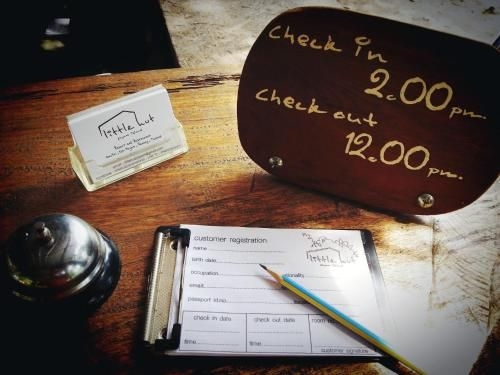 check in
2.00 pm.
check out
12.00 pm.
little hut
customer registration
name
birth date
occupation
email
passport id.no
check in date
check out date
room
time
time
customer signature
little hut